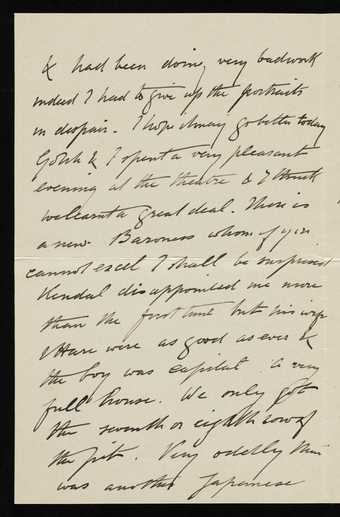 & had been doing very bad work
indeed I had to give up the portraits
in despair. I hope I may go better today
Gotch & I spent a very pleasant
evening at the theatre & I think
we learnt a great deal. There is
a new Baroness whom if you
cannot excel I shall be surprised
Kendal disappointed me more
than the first time but his wife
& Hare were as good as ever &
the boy was capital. A very
full house. We only got
the seventh or eighth row of
the pit. Very oddly there
was another Japanese